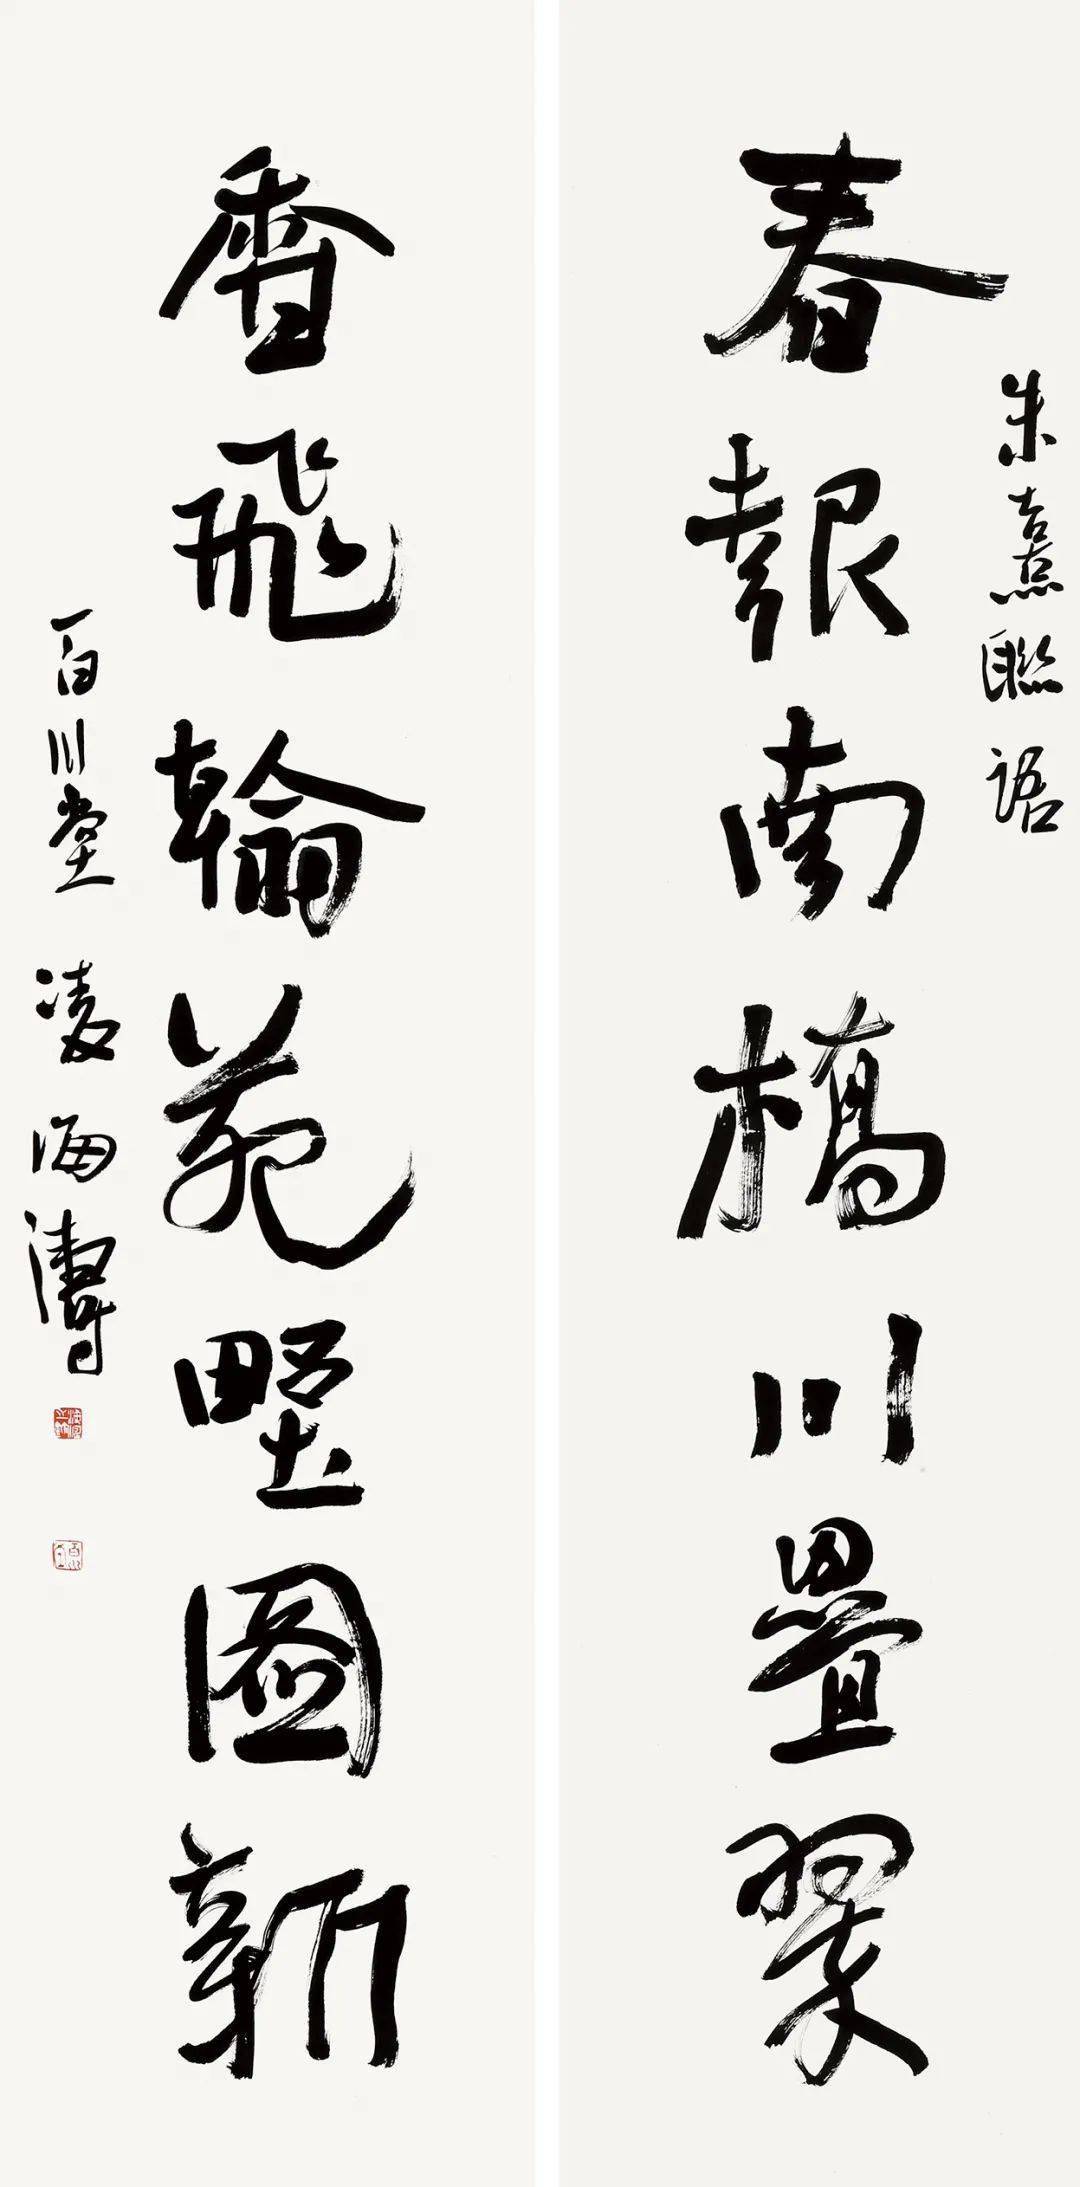 朱熹聯語
春報南橋川疊翠
香飛翰苑野圖新
百川堂凌海濤